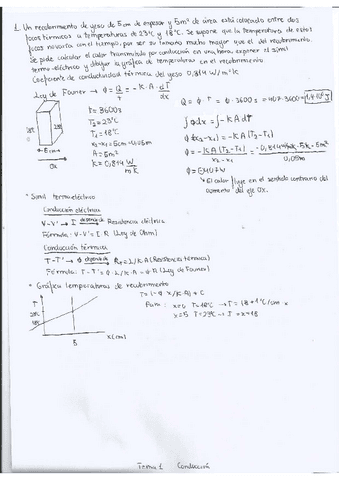 1. Un recubrimiento de yeso de 5cm de espesor y 5m² de área está colocado entre dos
focos térmicos a temperaturas de 23°C y 18°C. Se supone que la temperatura de estos
focos no varía con el tiempo, por ser su tamaño mucho mayor que el del recubrimiento.
Se pide calcular el calor transmitido por conducción en una hora, exponer el símil
termo-eléctrico y dibujar la gráfica de temperaturas en el recubrimiento.
Coeficiente de conductividad térmica del yeso 0,814 w/m·k
Ley de Fourier → Φ = Q/t = -K·A·dT/dx
t = 3600s
T2 = 23°C
T1 = 18°C
x2-x1 = 5cm = 0,05m
A = 5m²
K = 0,814 W/mK
← 5cm →
Ox
Q = Φ·T = Φ·3600s = 407·3600 =
∫Φdx = ∫-KAdT
Φ(x2-x1) = -KA(T2-T1)
Φ = -KA(T2-T1)/x2-x1 =
0,05m
Φ = -407w
El calor fluye en el sentido contrario del
aumento del eje Ox.
* Símil termoeléctrico
Conducción eléctrica
V-V' → I depende R Resistencia eléctrica
Fórmula: V-V' = I·R (Ley de Ohm)
Conducción térmica
T-T' → Φ depende Rt = L/K·A (Resistencia térmica)
Fórmula: T-T' = Φ·L/K·A = Φ·R (Ley de Fourier)
* Gráfica temperaturas de recubrimiento
T = (-Φ·x/K·A) + C
Para: x=0 T=18°C → T = 18 + 1°C/cm·x
x=5 T=23°C → T = x+18
T
23°C
18°C
5
x(cm)
Tema 1 Conducción